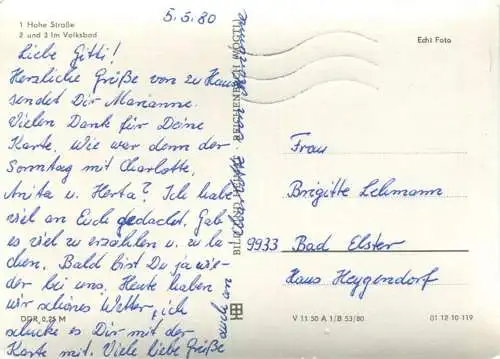 5.5.80
1 Hohe Straße
2 und 3 Im Volksbad
Liebe Gitti!
Herzliche Grüße von zu Haus
sendet Dir Marianne.
Vielen Dank für Deine
Karte. Wie war denn der
Sonntag mit Charlotte,
Anita u. Herta? Ich habe
viel an Euch gedacht. Gab
es viel zu erzählen u. zu la-
chen. Bald bist Du ja wie-
der bei uns. Heute haben
wir schönes Wetter, ich
schicke es Dir mit der
Karte mit. Viele liebe Grüße
auch an
DDR 0,25 M
BILD UND HEIMAT REICHENBACH (VOGTL)
Echt Foto
Frau
Brigitte Lehmann
9933 Bad Elster
Haus Heygendorf
V 11 50 A 1/B 53/80
01 12 10 119